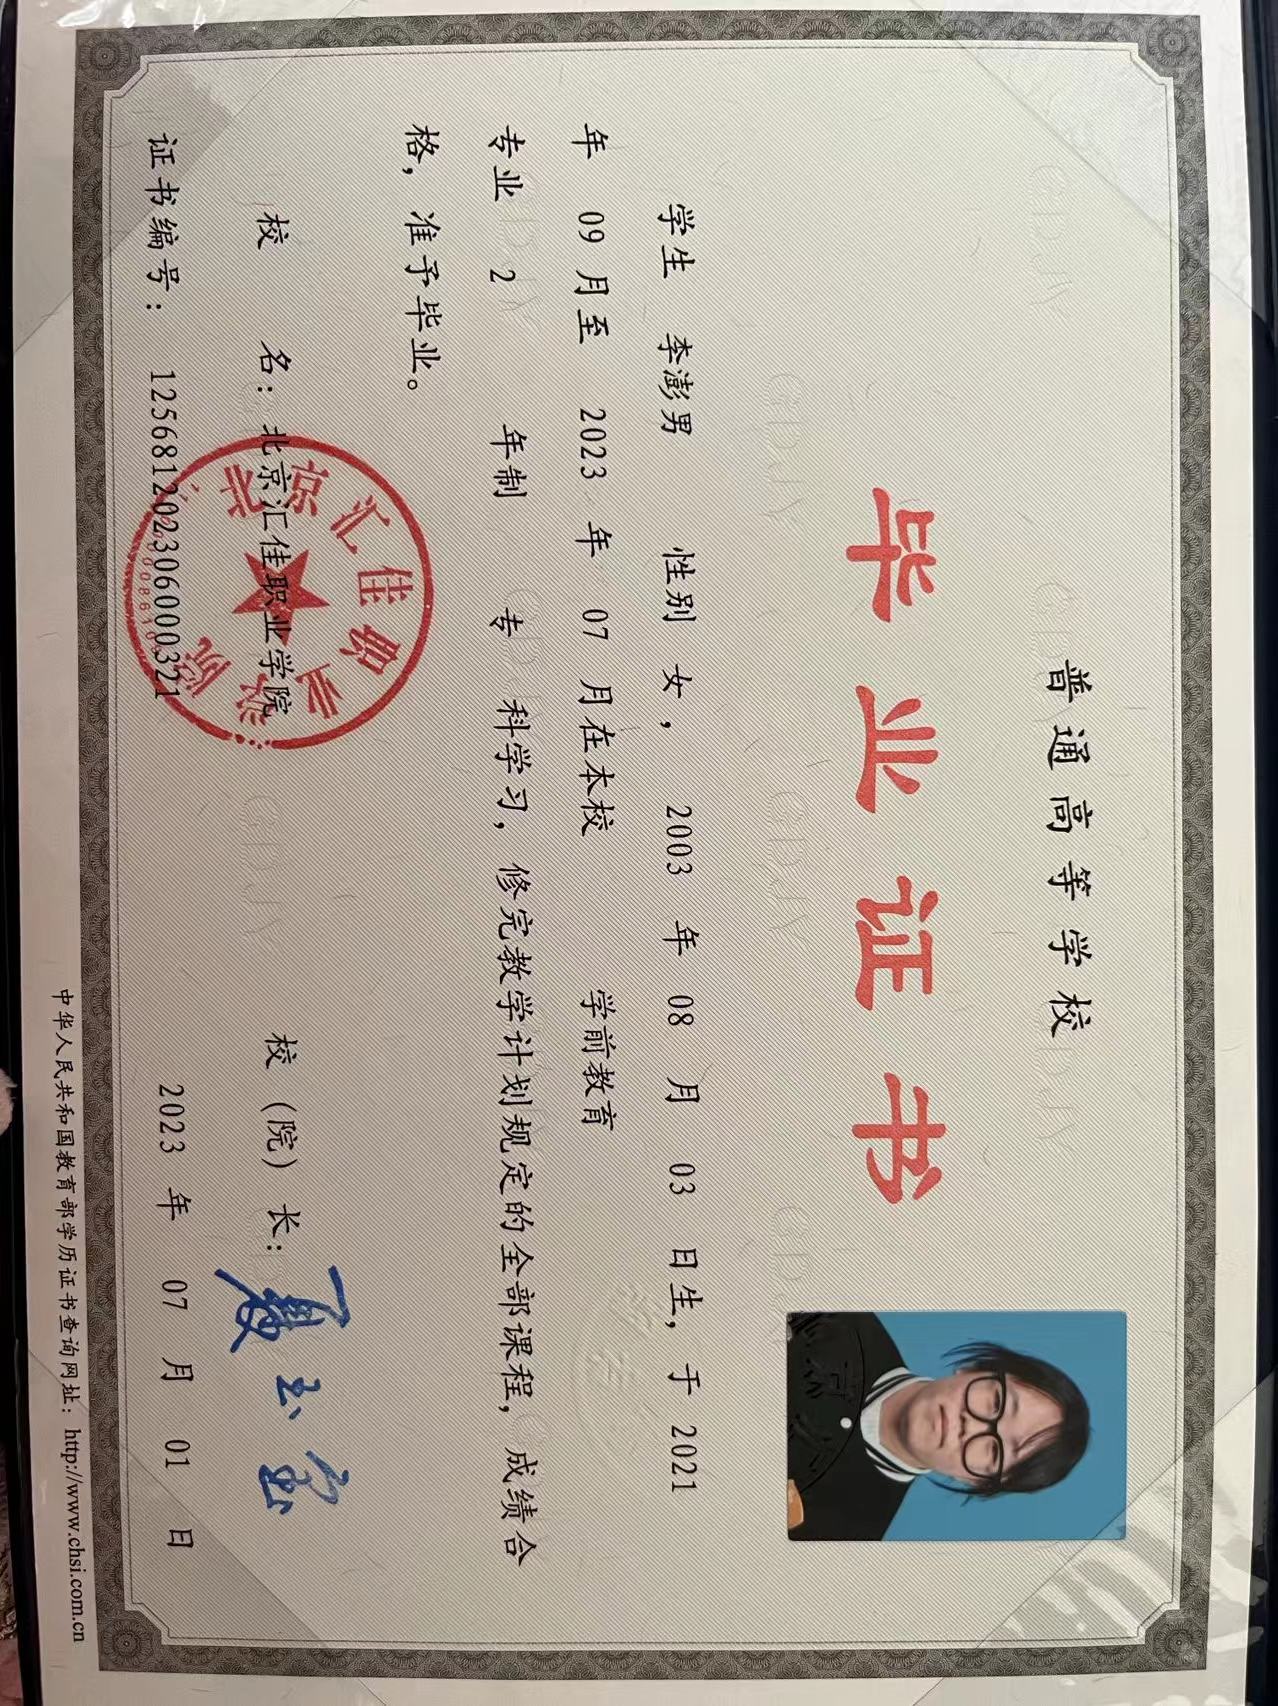 普通高等学校
毕业证书
学生 李澎男 性别 女， 2003 年 08 月 03 日生，于 2021
年 09 月至 2023 年 07 月在本校 学前教育
专业 2 年制 专 科学习，修完教学计划规定的全部课程，成绩合
格，准予毕业。
校 名：北京汇佳职业学院 校（院）长：夏玉宝
北京汇佳职业学院
证书编号：125681202306000321 2023 年 07 月 01 日
中华人民共和国教育部学历证书查询网址：http://www.chsi.com.cn